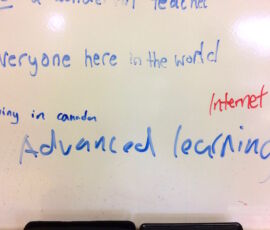 a wonderful teacher
everyone here in the world
Internet
ving in camdon
Advanced learning